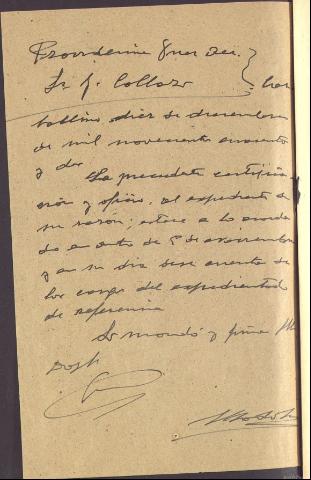 Providencia Juez
Sr. J. Collazo
diez de diciembre
de mil novecientos cincuenta
y dos
La precedente certifica
ción y oficio, al expediente de
su razón; estese a lo acorda
do en auto de 5 de noviembre
y en su dia dese cuenta de
los cargos del expedientado
de referencia
Lo mandó y firma
Doy fe